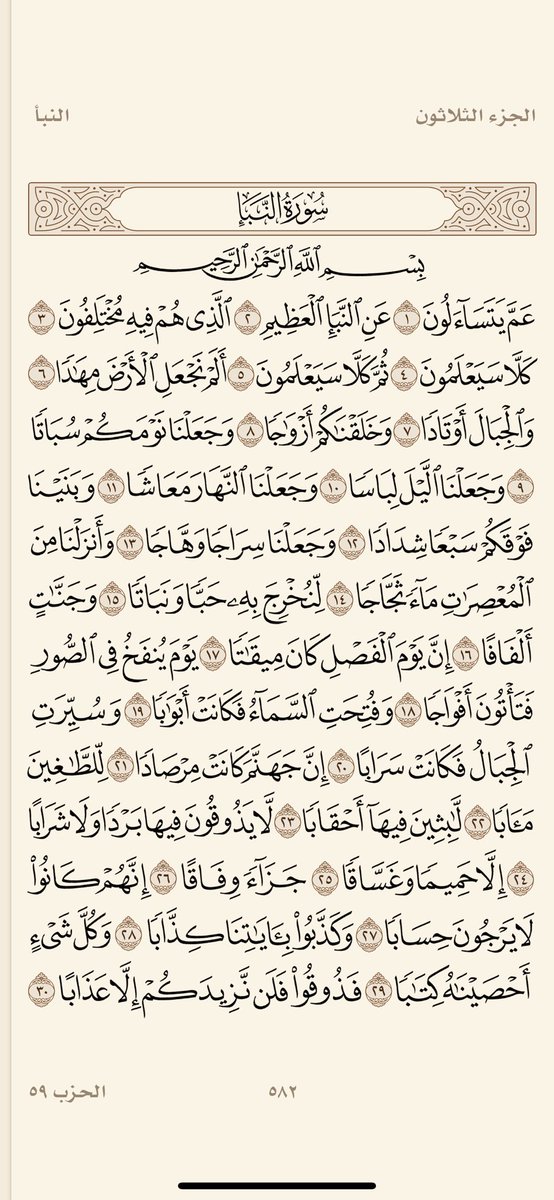 الجزء الثلاثون
النبأ
سُورَةُ النَّبَإِ
بِسْمِ ٱللَّهِ ٱلرَّحْمَٰنِ ٱلرَّحِيمِ
عَمَّ يَتَسَآءَلُونَ ١ عَنِ ٱلنَّبَإِ ٱلْعَظِيمِ ٢ ٱلَّذِى هُمْ فِيهِ مُخْتَلِفُونَ ٣
كَلَّا سَيَعْلَمُونَ ٤ ثُمَّ كَلَّا سَيَعْلَمُونَ ٥ أَلَمْ نَجْعَلِ ٱلْأَرْضَ مِهَٰدًا ٦
وَٱلْجِبَالَ أَوْتَادًا ٧ وَخَلَقْنَٰكُمْ أَزْوَٰجًا ٨ وَجَعَلْنَا نَوْمَكُمْ سُبَاتًا
٩ وَجَعَلْنَا ٱلَّيْلَ لِبَاسًا ١٠ وَجَعَلْنَا ٱلنَّهَارَ مَعَاشًا ١١ وَبَنَيْنَا
فَوْقَكُمْ سَبْعًا شِدَادًا ١٢ وَجَعَلْنَا سِرَاجًا وَهَّاجًا ١٣ وَأَنزَلْنَا مِنَ
ٱلْمُعْصِرَٰتِ مَآءً ثَجَّاجًا ١٤ لِّنُخْرِجَ بِهِۦ حَبًّا وَنَبَاتًا ١٥ وَجَنَّٰتٍ
أَلْفَافًا ١٦ إِنَّ يَوْمَ ٱلْفَصْلِ كَانَ مِيقَٰتًا ١٧ يَوْمَ يُنفَخُ فِى ٱلصُّورِ
فَتَأْتُونَ أَفْوَاجًا ١٨ وَفُتِحَتِ ٱلسَّمَآءُ فَكَانَتْ أَبْوَٰبًا ١٩ وَسُيِّرَتِ
ٱلْجِبَالُ فَكَانَتْ سَرَابًا ٢٠ إِنَّ جَهَنَّمَ كَانَتْ مِرْصَادًا ٢١ لِّلطَّٰغِينَ
مَـَٔابًا ٢٢ لَّٰبِثِينَ فِيهَآ أَحْقَابًا ٢٣ لَّا يَذُوقُونَ فِيهَا بَرْدًا وَلَا شَرَابًا
٢٤ إِلَّا حَمِيمًا وَغَسَّاقًا ٢٥ جَزَآءً وِفَاقًا ٢٦ إِنَّهُمْ كَانُوا۟
لَا يَرْجُونَ حِسَابًا ٢٧ وَكَذَّبُوا۟ بِـَٔايَٰتِنَا كِذَّابًا ٢٨ وَكُلَّ شَىْءٍ
أَحْصَيْنَٰهُ كِتَٰبًا ٢٩ فَذُوقُوا۟ فَلَن نَّزِيدَكُمْ إِلَّا عَذَابًا ٣٠
٥٨٢
الحزب ٥٩